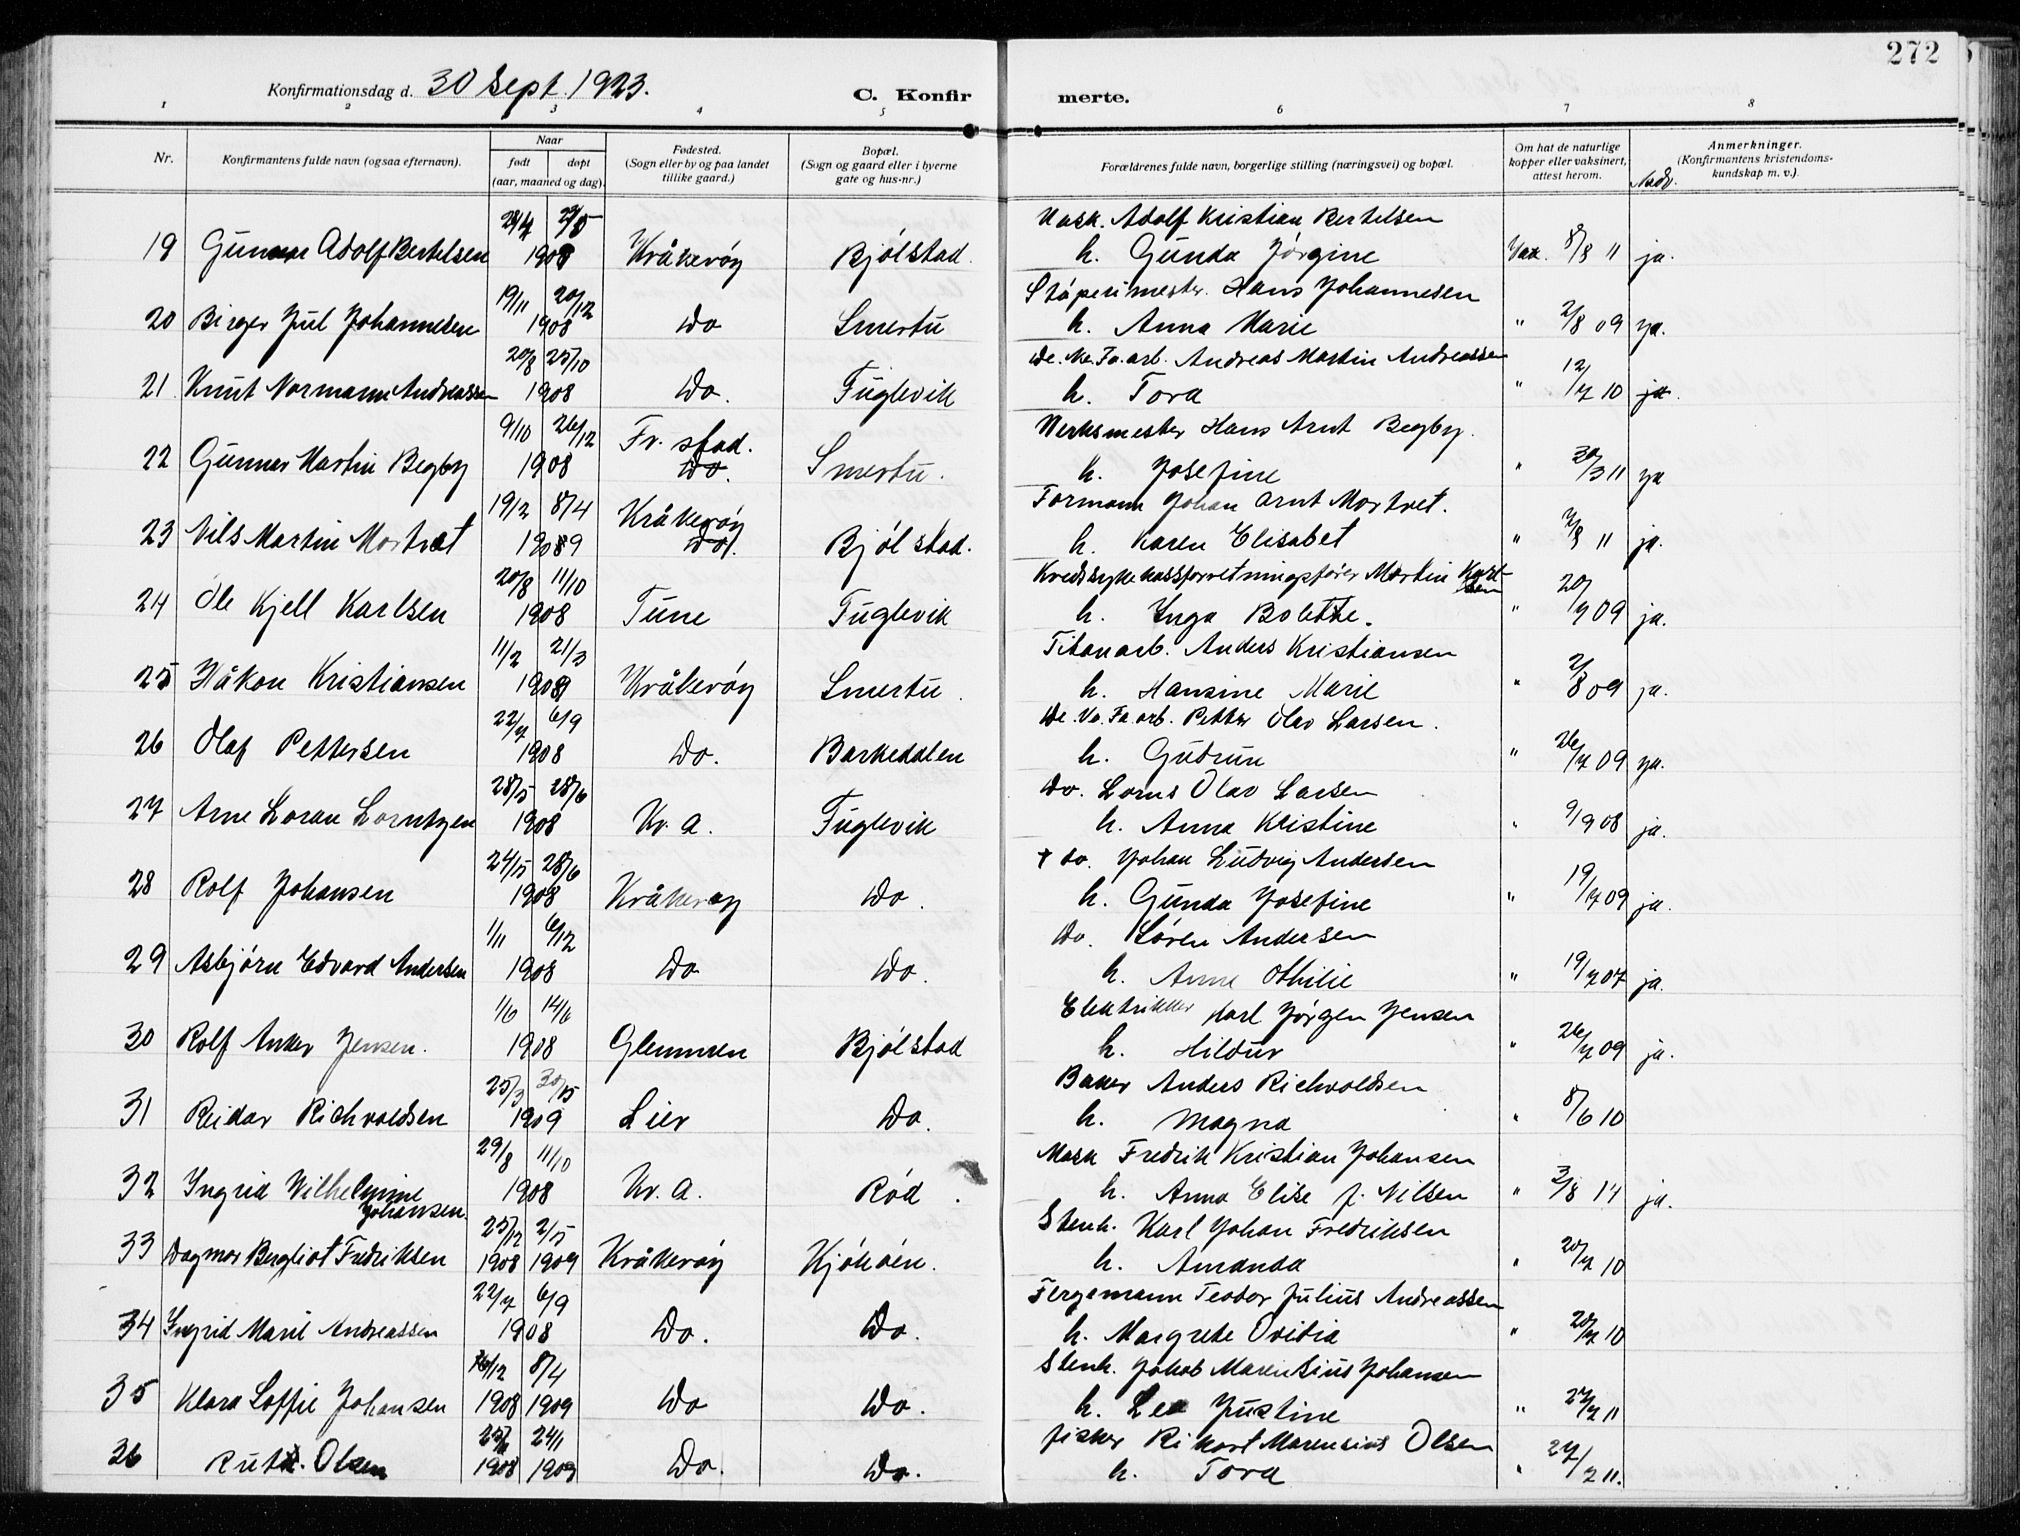 272
Konfirmationsdag d. 30 Sept. 1923.
C. Konfirmerte.
1 2 3 4 5 6 7 8
Nr. Konfirmantens fulde navn (ogsaa efternavn). Naar født døpt (aar, maaned og dag). Fødested. (Sogn eller by og paa landet tillike gaard.) Bopæl. (Sogn og gaard eller i byerne gate og hus-nr.) Forældrenes fulde navn, borgerlige stilling (næringsvei) og bopæl. Om hat de naturlige kopper eller vaksinert, attest herom. Anmerkninger. (Konfirmantens kristendoms-kundskap m. v.).
Nadv.
Mask. Adolf Kristian Bertelsen
19 Gunnar Adolf Bertelsen 1908 Kråkerøy Bjølstad. h. Gunda Jørgine Vax. 8/8 11 ja.
19/11 20/12 Støperimester. Hans Johannesen
20 Birger Jul Johannesen 1908 Do Smertu h. Anna Marie " 2/8 09 ja.
20/8 25/10 De. No. Fa. arb. Andreas Martin Andreassen
21 Knut Normann Andreassen 1908 Do. Fuglevik h. Tora " 12/7 10 ja.
9/10 26/12 Fr. stad. Verksmester Hans Arnt Begby.
22 Gunnar Martin Begby 1908 Do. Smertu. h. Josefine " 30/3 11 ja
19/12 8/4 Kråkerøy Formann Johan Arnt Mortvet.
23 Nils Martin Mortvet 19089 Do. Bjølstad. h. Karen Elisabet " 7/8 11 ja.
20/8 11/10 Kredssykekasseforretningsfører Martin Karlsen
24 Ole Kjell Karlsen 1908 Tune Fuglevik h. Inga Bolette. " 20/7 09 ja.
11/2 21/3 Titanarb. Anders Kristiansen
25 Håkon Kristiansen 19089 Kråkerøy Smertu. h. Hansine Marie " 2/8 09 ja.
22/7 6/9 De. No. Fa. arb. Petter Olav Larsen.
26 Olaf Pettersen 1908 Do. Barkedalen h. Gudrun " 26/7 09 ja.
28/5 28/6 Do. Lorns Olav Larsen
27 Arne Loran Lorntzen 1908 Kr. a. Fuglevik h. Anna Kristine " 9/9 08 ja.
24/5 28/6 † do. Johan Ludvig Andersen
28 Rolf Johansen 1908 Kråkerøy Do. h. Gunda Josefine " 19/7 09 ja.
1/11 6/12 Do. Søren Andersen
29 Asbjørn Edvard Andersen 1908 Do Do. h. Anne Othilie " 19/7 07 ja.
1/6 14/6 Elektrikker Karl Jørgen Jensen
30 Rolf Anker Jensen. 1908 Glemmen Bjølstad h. Hildur " 26/7 09 ja.
25/3 30/5 Baker Anders Richvoldsen
31 Reidar Richvoldsen 1909 Lier Do. h. Magna " 8/6 10
29/8 11/10 Mask Fredrik Kristian Johansen
32 Ingrid Vilhelmine Johansen. 1908 Kr. a. Rød. h. Anna Elise f. Nilsen " 3/8 14 ja.
25/12 2/5 Stenh. Karl Johan Fredriksen
33 Dagmar Bergliot Fredriksen 1908 1909 Kråkerøy Kjøkøen. h. Amanda " 20/7 10
22/7 6/9 Fergemann Teodor Julius Andreassen
34 Ingrid Marie Andreassen 1908 Do. Do. h. Margrete Ovidia " 20/7 10
8/4 Stenh. Jakob Marensius Johansen
35 Klara Soffie Johansen 1908 1909 Do Do. h. Lea Justine " 27/7 11
24/1 fisker Rikart Marensius Olsen
36 Rut. Olsen 1908 1909 Do. Do. h. Tora " 27/7 11.